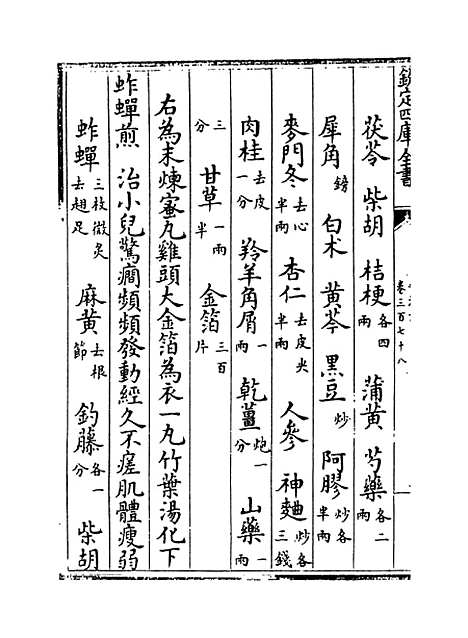 欽定四庫全書
卷三百七十八
茯苓 柴胡 桔梗各四兩 蒲黄 芍藥各二兩
犀角鎊 白术 黄芩 黑豆炒 阿膠炒各半兩
麥門冬去心半兩 杏仁去皮尖半兩 人參 神麯炒各三錢
肉桂去皮一分 羚羊角屑一兩 乾薑炮一分 山藥一兩
三分 甘草一兩半 金箔三百片
右為末煉蜜丸雞頭大金箔為衣一丸竹葉湯化下
蚱蟬煎 治小兒驚癎頻頻發動經久不瘥肌體瘦弱
蚱蟬三枚微炙去翅足 麻黄去根節 釣藤各一分 柴胡